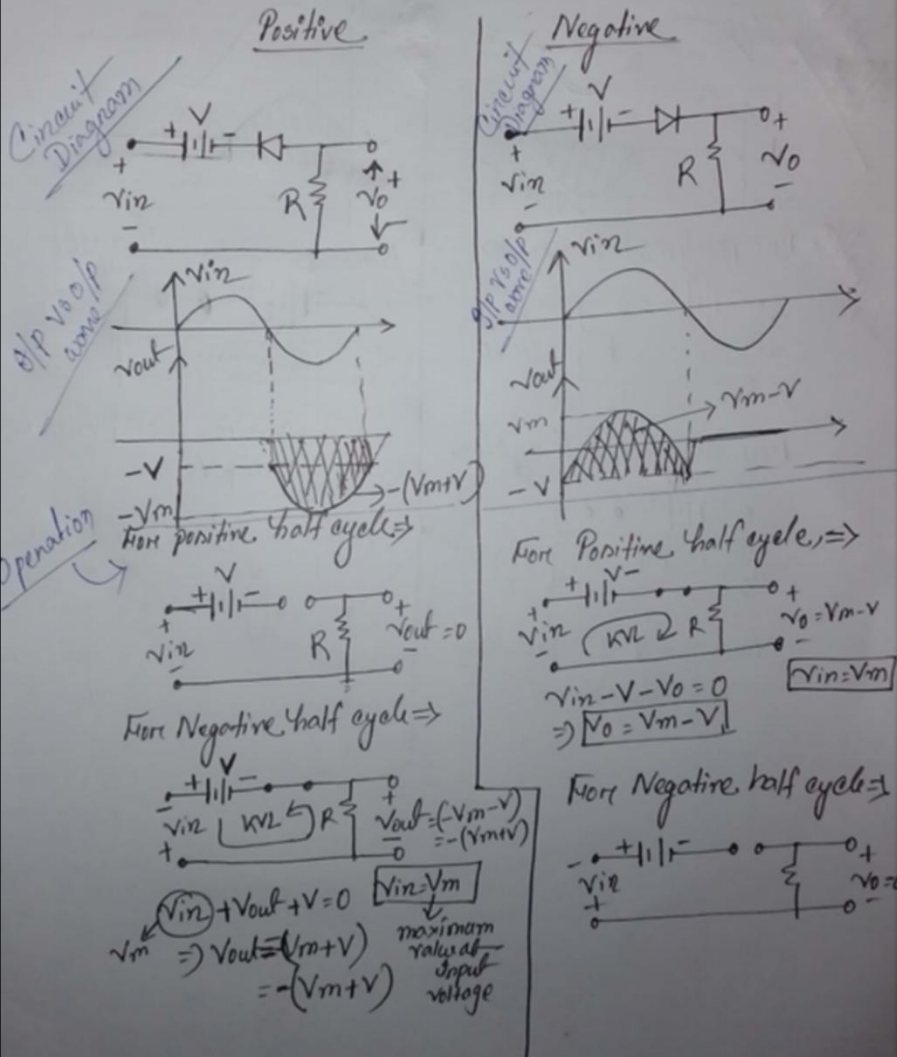 Positive
Circuit
Diagram
V
+ -
+
Vin
-
R
+
Vo
-
I/P Vs O/P
wave
Vin
Vout
-V
-Vm
-(Vm+V)
Operation
Fore positive half cycle ⇒
V
+ -
+
Vin
-
R
+
Vout = 0
-
Fore Negative half cycle ⇒
V
+ -
-
Vin
+
KVL
R
+
Vout = (-Vm-V)
= -(Vm+V)
-
Vin + Vout + V = 0
Vm
⇒ Vout = -(Vm+V)
= -(Vm+V)
Vin = Vm
maximum
value at
input
voltage
Negative
Circuit
Diagram
V
+ -
+
Vin
-
R
+
Vo
-
I/P Vs O/P
wave
Vin
Vout
Vm
Vm-V
-V
Fore Positive half cycle, ⇒
V
+ -
+
Vin
-
KVL
R
+
Vo = Vm-V
-
Vin = Vm
Vin - V - Vo = 0
⇒ Vo = Vm - V
Fore Negative half cycle ⇒
+ -
-
Vin
+
+
Vo =
-